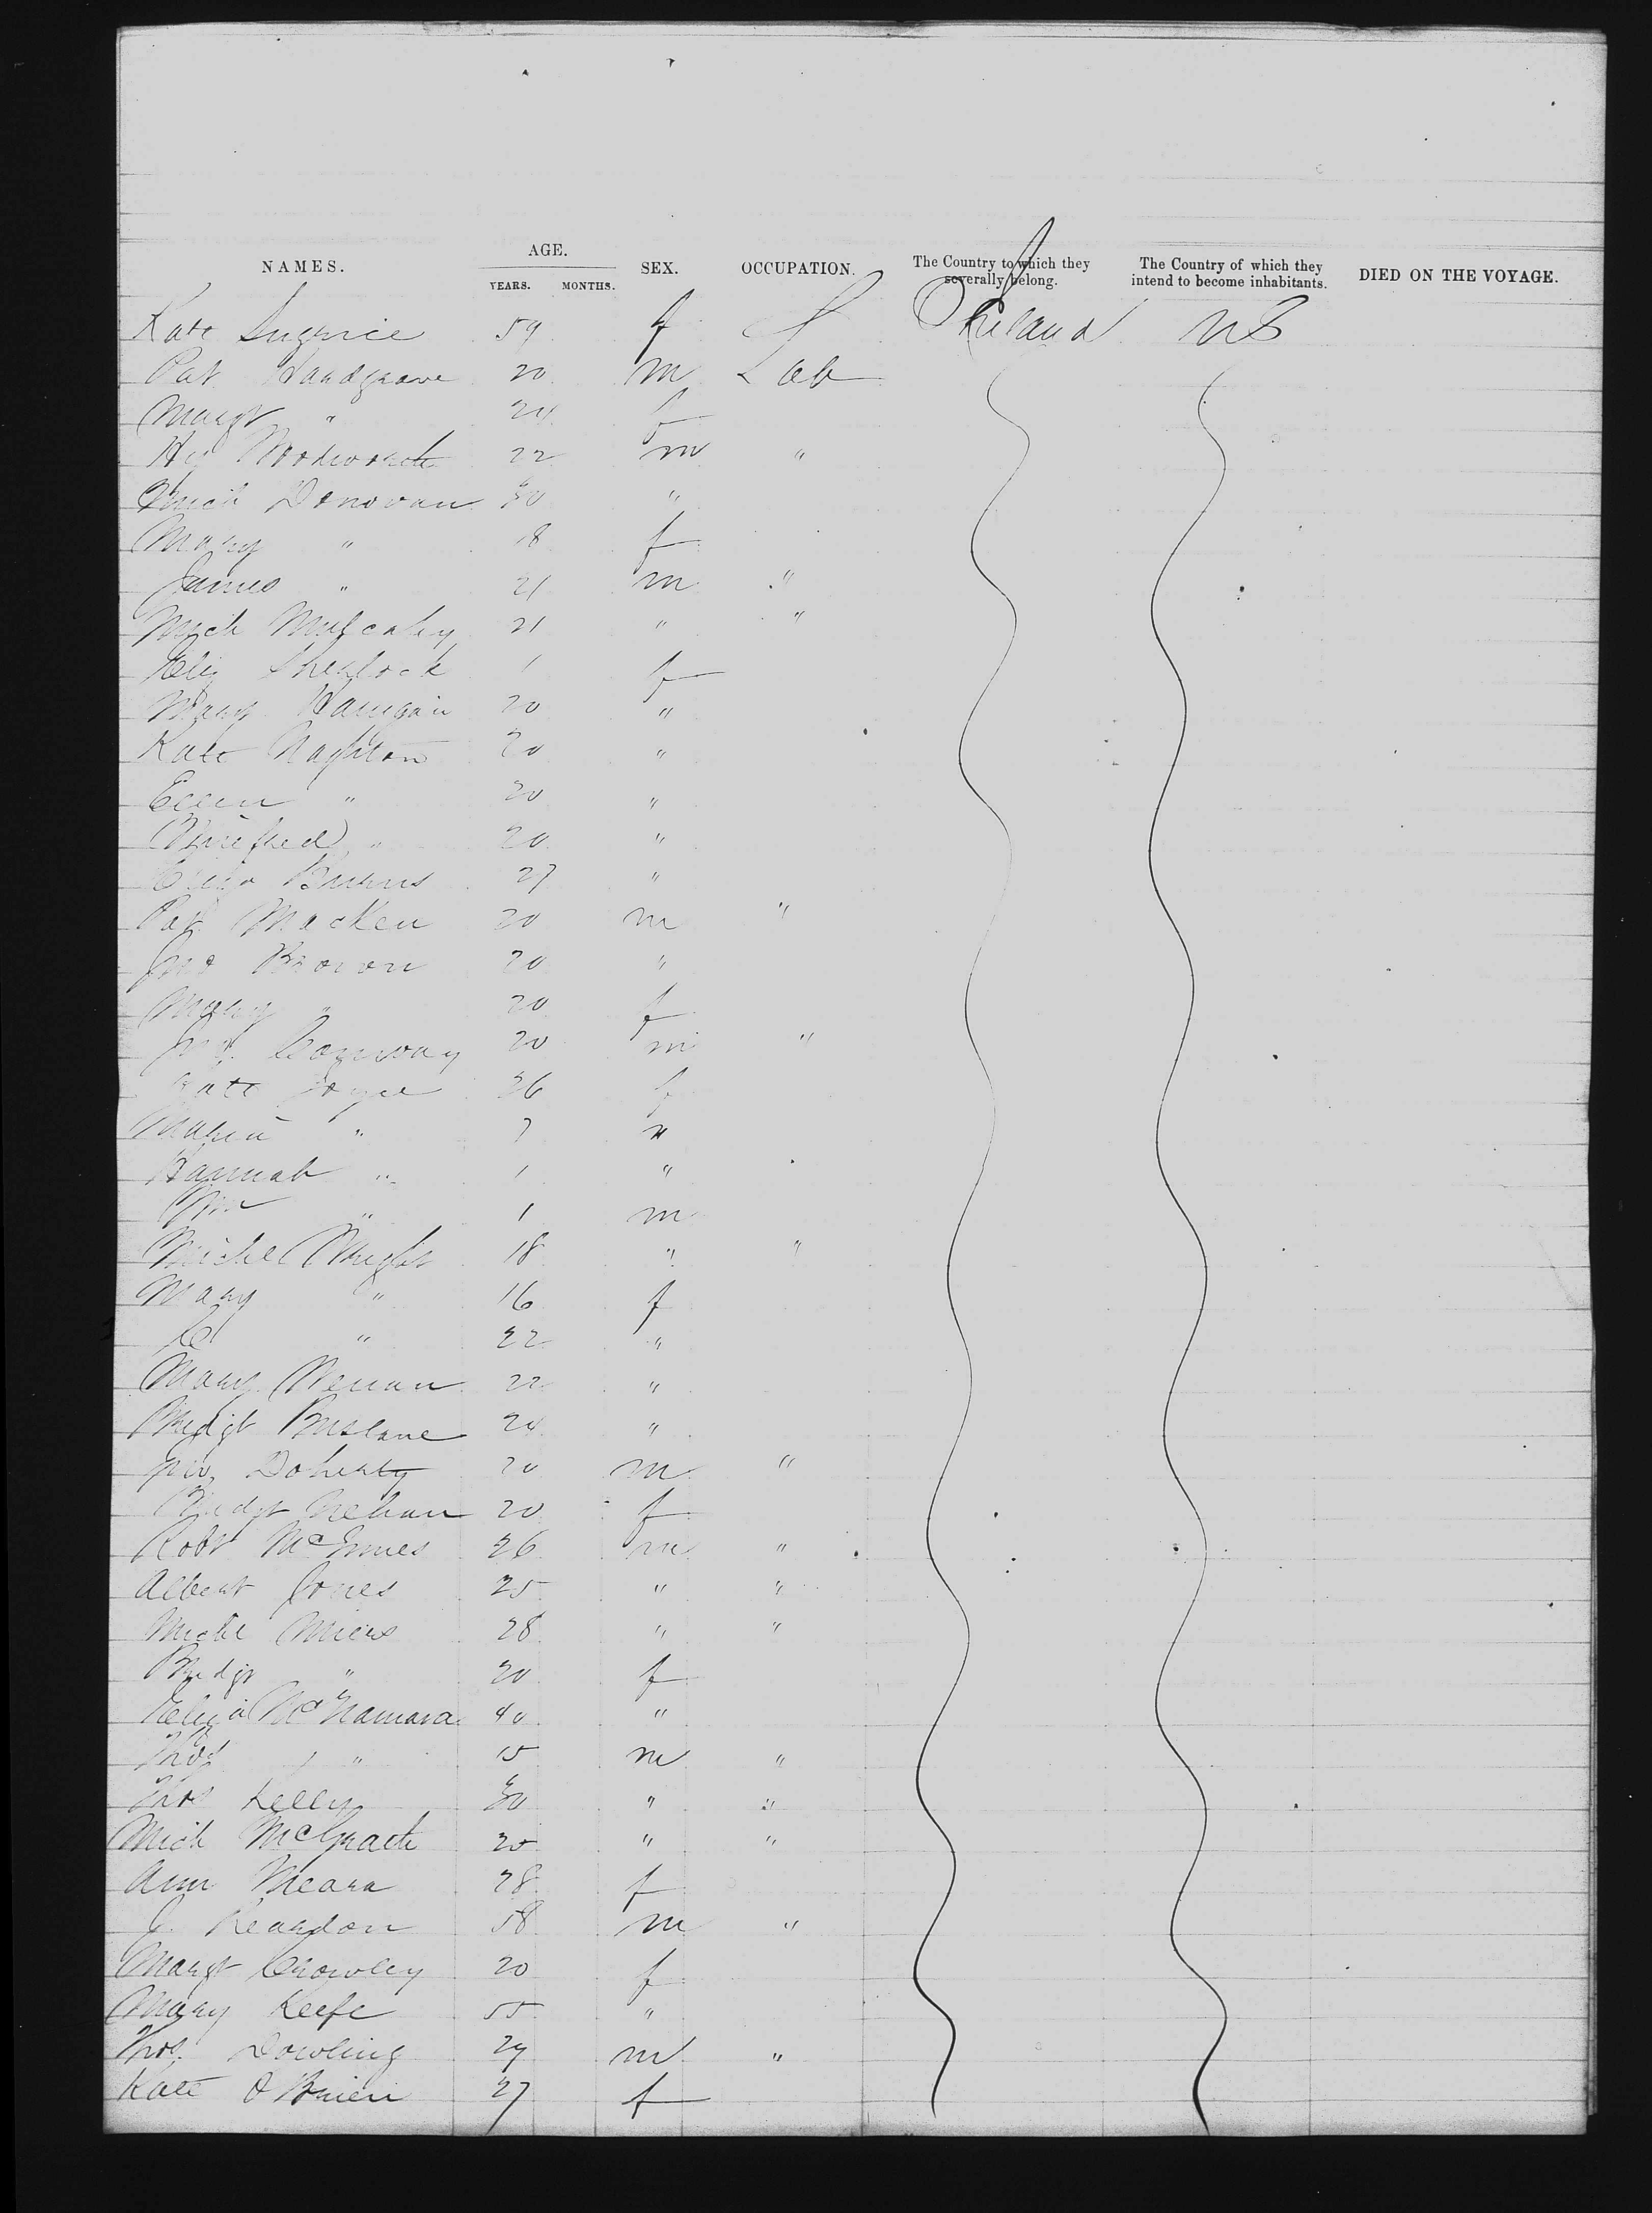 NAMES. AGE. YEARS. MONTHS. SEX. OCCUPATION. The Country to which they severally belong. The Country of which they intend to become inhabitants. DIED ON THE VOYAGE.
Kate 59 f Ireland US
Pat Handgrave 20 m Lab
Margt " 24 f
Hy Woodworth 22 m "
Mich Donovan 30 "
Mary " 18 f
James " 21 m "
Mich Mulcahy 21 " "
Eliz Sherlock 1 f
Mary Hanigan 20 "
Kate Naghton 20 "
Ellen " 20 "
Winifred " 20 "
Eliza Burns 27 "
Pat Macken 20 m "
Jno Brown 20 "
Mary " 20 f
Jno. Conway 20 m "
Kate Joyce 36 f
Maria " 7 "
Hannah " 1 "
Wm " 1 m
Michel Wright 18 " "
Mary " 16 f
" 22 "
Mary 22 "
Bridgt Brislane 24 "
Jno. Doherty 20 m "
Bridgt Mehan 20 f
Robt McInnes 26 m "
Albert Jones 25 " "
Michl Miers 28 " "
Bridgt " 20 f
Eliza McNamara 40 "
Thos " 15 m "
Thos Kelly 30 " "
Mich McGrath 20 " "
Ann Meara 28 f
J. Reardon 58 m "
Margt Crowley 20 f
Mary Keefe 55 "
Thos. Dowling 29 m "
Kate O'Brien 27 f